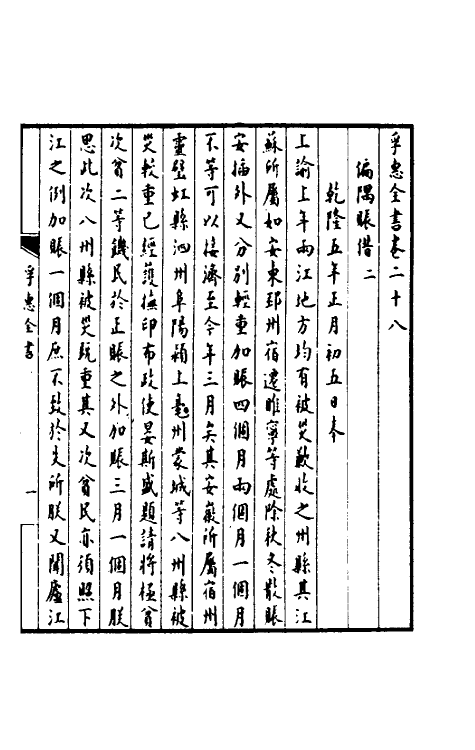 孚惠全書卷二十八
偏隅賑借二
乾隆五年正月初五日奉
上諭上年兩江地方均有被災歉收之州縣其江
蘇所屬如安東邳州宿遷睢寧等處除秋冬散賑
安插外又分別輕重加賑四個月兩個月一個月
不等可以接濟至今年三月矣其安徽所屬宿州
靈璧虹縣泗州阜陽潁上亳州蒙城等八州縣被
災較重已經護撫印布政使晏斯盛題請將極貧
次貧二等饑民於正賑之外加賑三月一個月朕
思此次八州縣被災既重其又次貧民亦須照下
江之例加賑一個月庶不致於失所朕又聞廬江
孚惠全書
一